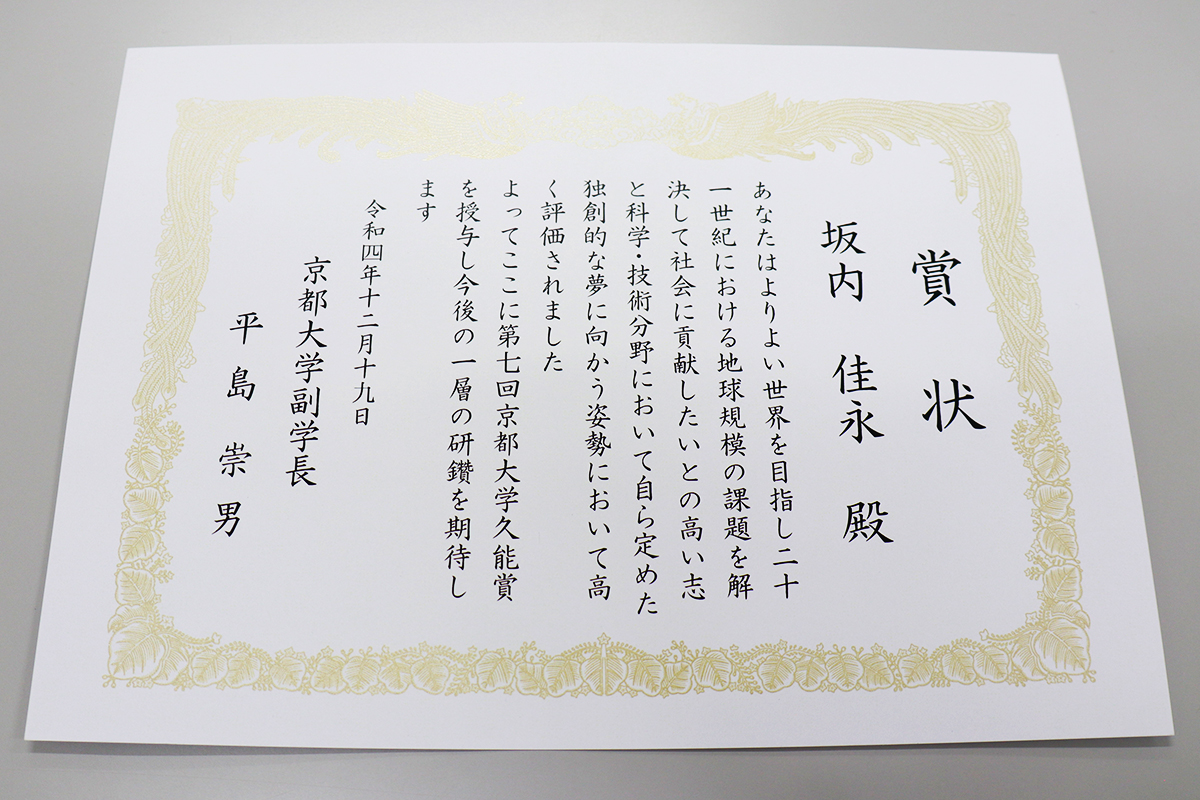 賞状
坂内 佳永 殿
あなたはよりよい世界を目指し二十
一世紀における地球規模の課題を解
決して社会に貢献したいとの高い志
と科学・技術分野において自ら定めた
独創的な夢に向かう姿勢において高
く評価されました
よってここに第七回京都大学久能賞
を授与し今後の一層の研鑽を期待し
ます
令和四年十二月十九日
京都大学副学長
平島崇男